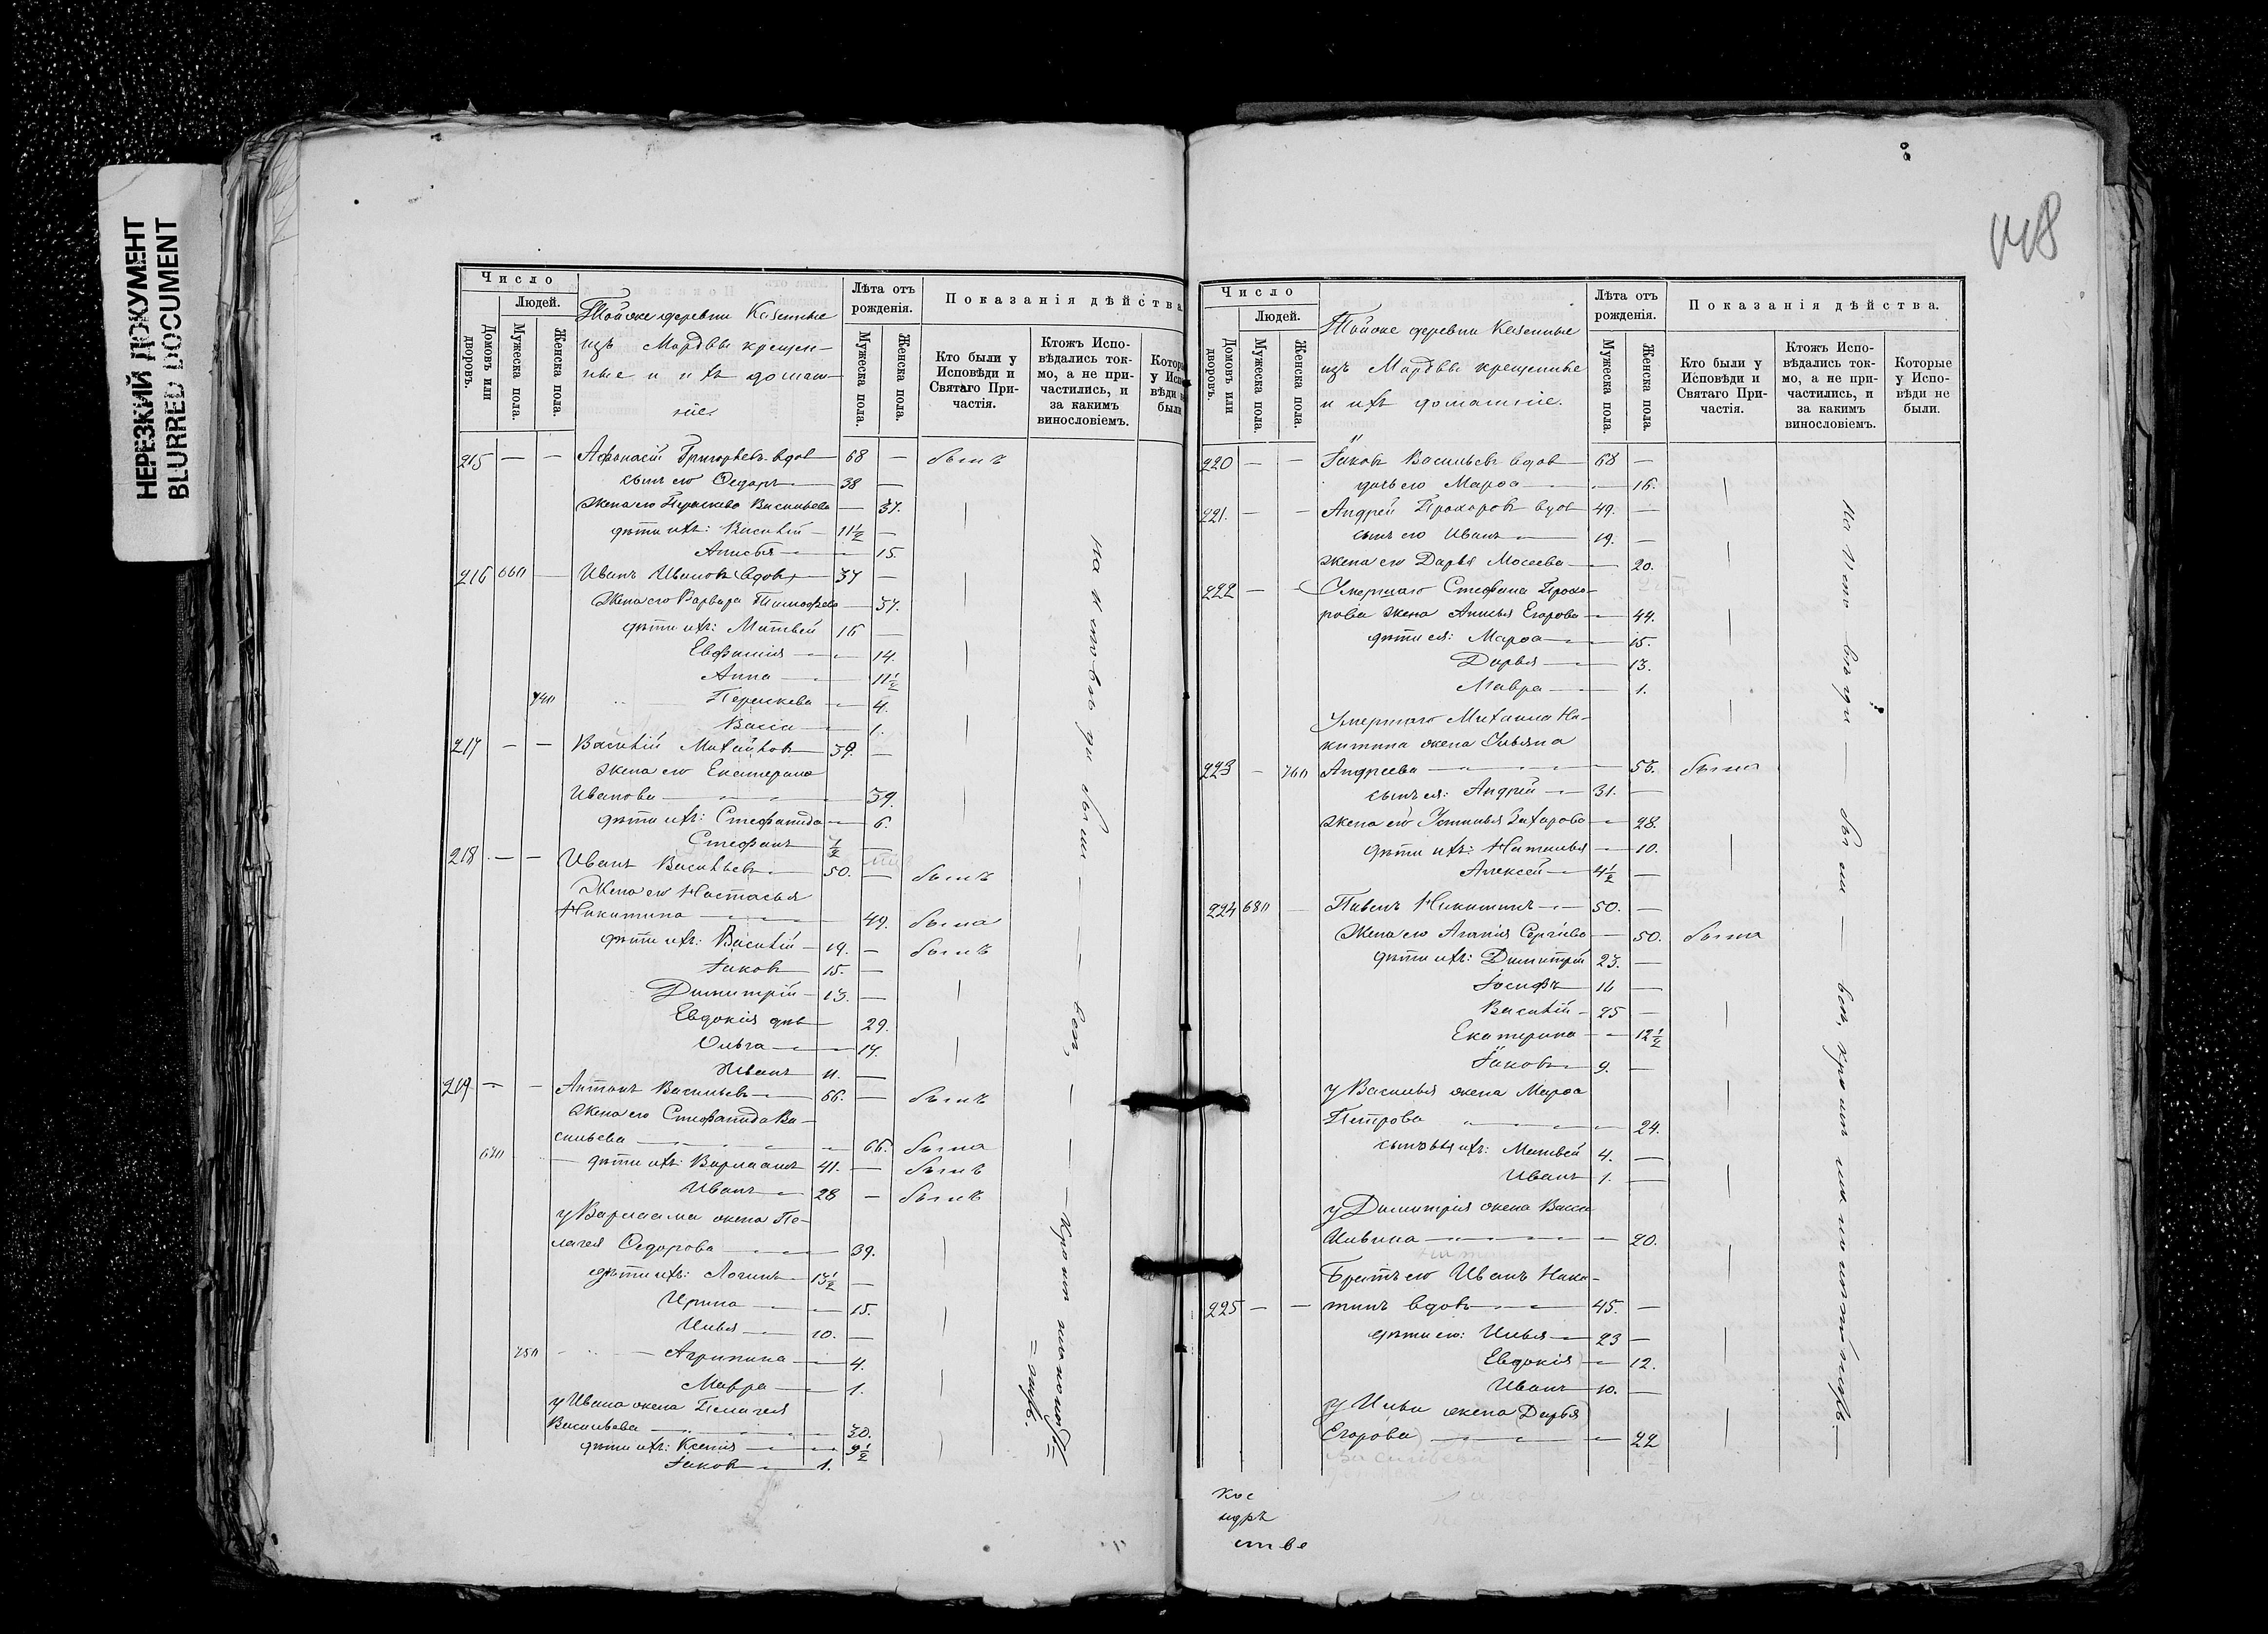 НЕРЕЗКИЙ ДОКУМЕНТ
BLURRED DOCUMENT
Число
Людей.
Домовъ или дворовъ.
Мужеска пола.
Женска пола.
Тойже деревни Казенные
изъ Мордвы крещен-
ные и ихъ домаш-
ніе.
Лѣта отъ рожденія.
Мужеска пола.
Женска пола.
Показанія дѣйства
Кто были у Исповѣди и Святаго При-частія.
Ктожъ Испо-вѣдались ток-мо, а не при-частились, и за какимъ винословіемъ.
215 — — Афонасій Григорьевъ вдов 68 — былъ
сынъ его Ѳедоръ 38 —
Жена его Параскева Васильева — 37.
дѣти ихъ: Василій 11 1/2 —
Анисья — 15
216 66п — Иванъ Ивановъ (вдовъ) 37 —
Жена его Варвара Тимофеева — 37.
дѣти ихъ: Матвей 16 —
Евфимія — 14.
Анна — 11 1/2
74п Параскева — 4.
Васса — 1.
217 — — Василій Михайлов 39. —
жена его Екатерина
Иванова — 39.
дѣти ихъ: Стефанида — 6.
Стефанъ 1/2 —
218 — — Иванъ Васильевъ 50. — былъ
Жена его Настасья
Никитина — 49. была
дѣти ихъ: Василій 19. — былъ
Іаковъ 15. —
Димитрій 13. —
Евдокія дѣв 29.
Ольга — 14.
Иванъ 11. —
219 — — Антонъ Васильевъ 66. — былъ
жена его Стефанида Ва-
сильева — 66. была
67п дѣти ихъ: Варлаамъ 41. — былъ
Иванъ 28 — былъ
у Варлаама жена Пе-
лагея Ѳедорова — 39.
дѣти ихъ: Логинъ 13 1/2 —
Ирина — 15.
Илья 10. —
75п Агрипина — 4.
Мавра — 1.
у Ивана жена Пелагея
Васильева — 30.
дѣти ихъ: Ксенія — 9 1/2
Іаковъ 1.
на исповѣди были всѣ, кромѣ
148
Число
Людей.
Домовъ или дворовъ.
Мужеска пола.
Женска пола.
Тойже деревни Казенные
изъ Мордвы крещенные
и ихъ домашніе.
Лѣта отъ рожденія.
Мужеска пола.
Женска пола.
Показанія дѣйства.
Кто были у Исповѣди и Святаго При-частія.
Ктожъ Испо-вѣдались ток-мо, а не при-частились, и за какимъ винословіемъ.
Которые у Испо-вѣди не были.
220 — — Іаковъ Васильевъ вдов 68 —
дочь его Марѳа — 16.
221. — — Андрей Прохоровъ вдов 49. —
сынъ его Иванъ 19. —
жена его Дарья Мосеева — 20.
222 — — Умершаго Стефана Прохо-
рова жена Анисья Егорова — 44.
дѣти ея: Марѳа — 15.
Дарья — 13.
Мавра — 1.
Умершаго Михаила Ни-
китина жена Ульяна
223 — 76п Андреева — 55. была
сынъ ея: Андрей 31. —
жена его Устинья Захарова — 28.
дѣти ихъ: Наталья — 10.
Алексей 4 1/2 —
224 68п Павелъ Никитинъ 50. —
Жена его Агапія Сергіева — 50. была
дѣти ихъ: Димитрій 23. —
Іосифъ 16 —
Василій 25 —
Екатерина — 12 1/2
Іаковъ 9. —
у Василья жена Марѳа
Петрова — 24.
сыновья ихъ: Матвей 4. —
Иванъ 1. —
у Димитрія жена Васса
Ильина — 20.
Братъ его Иванъ Ники-
225 — — тинъ вдовъ 45. —
дѣти его: Илья 23 —
Евдокія — 12.
Иванъ 10. —
у Ильи жена (Дарья)
Егорова — 22